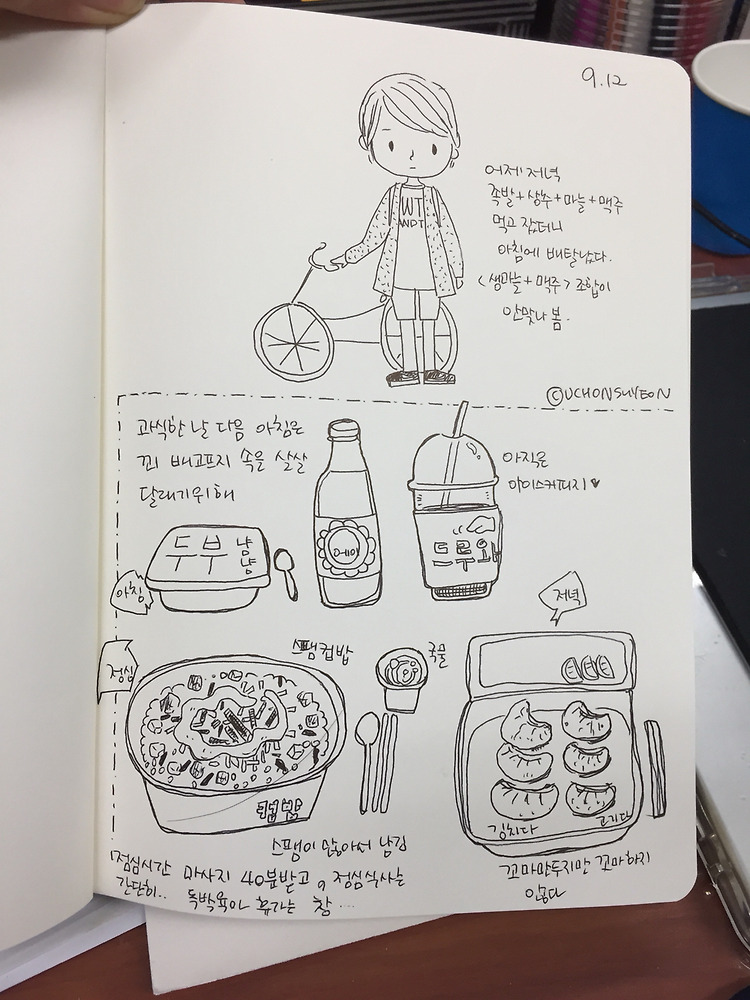 9.12
어제 저녁
족발+상추+마늘+맥주
먹고 잤더니
아침에 배탈났다.
<생마늘+맥주> 조합이
안맞나 봄.
©UCHONSUYEON
WT
과식한 날 다음 아침은
뀌 배고프지 속을 살살
달래기위해
두부
냠냠
드루와
아직은
아이스커피지♥
아침
점심
스팸컵밥
국물
저녁
컵밥
김치다
고기다
스팸이 많아서 남김
점심시간 마사지 40분받고 점심식사는
간단히.. 독박육아 휴가는 참...
꼬마만두지만 꼬마하지
않다